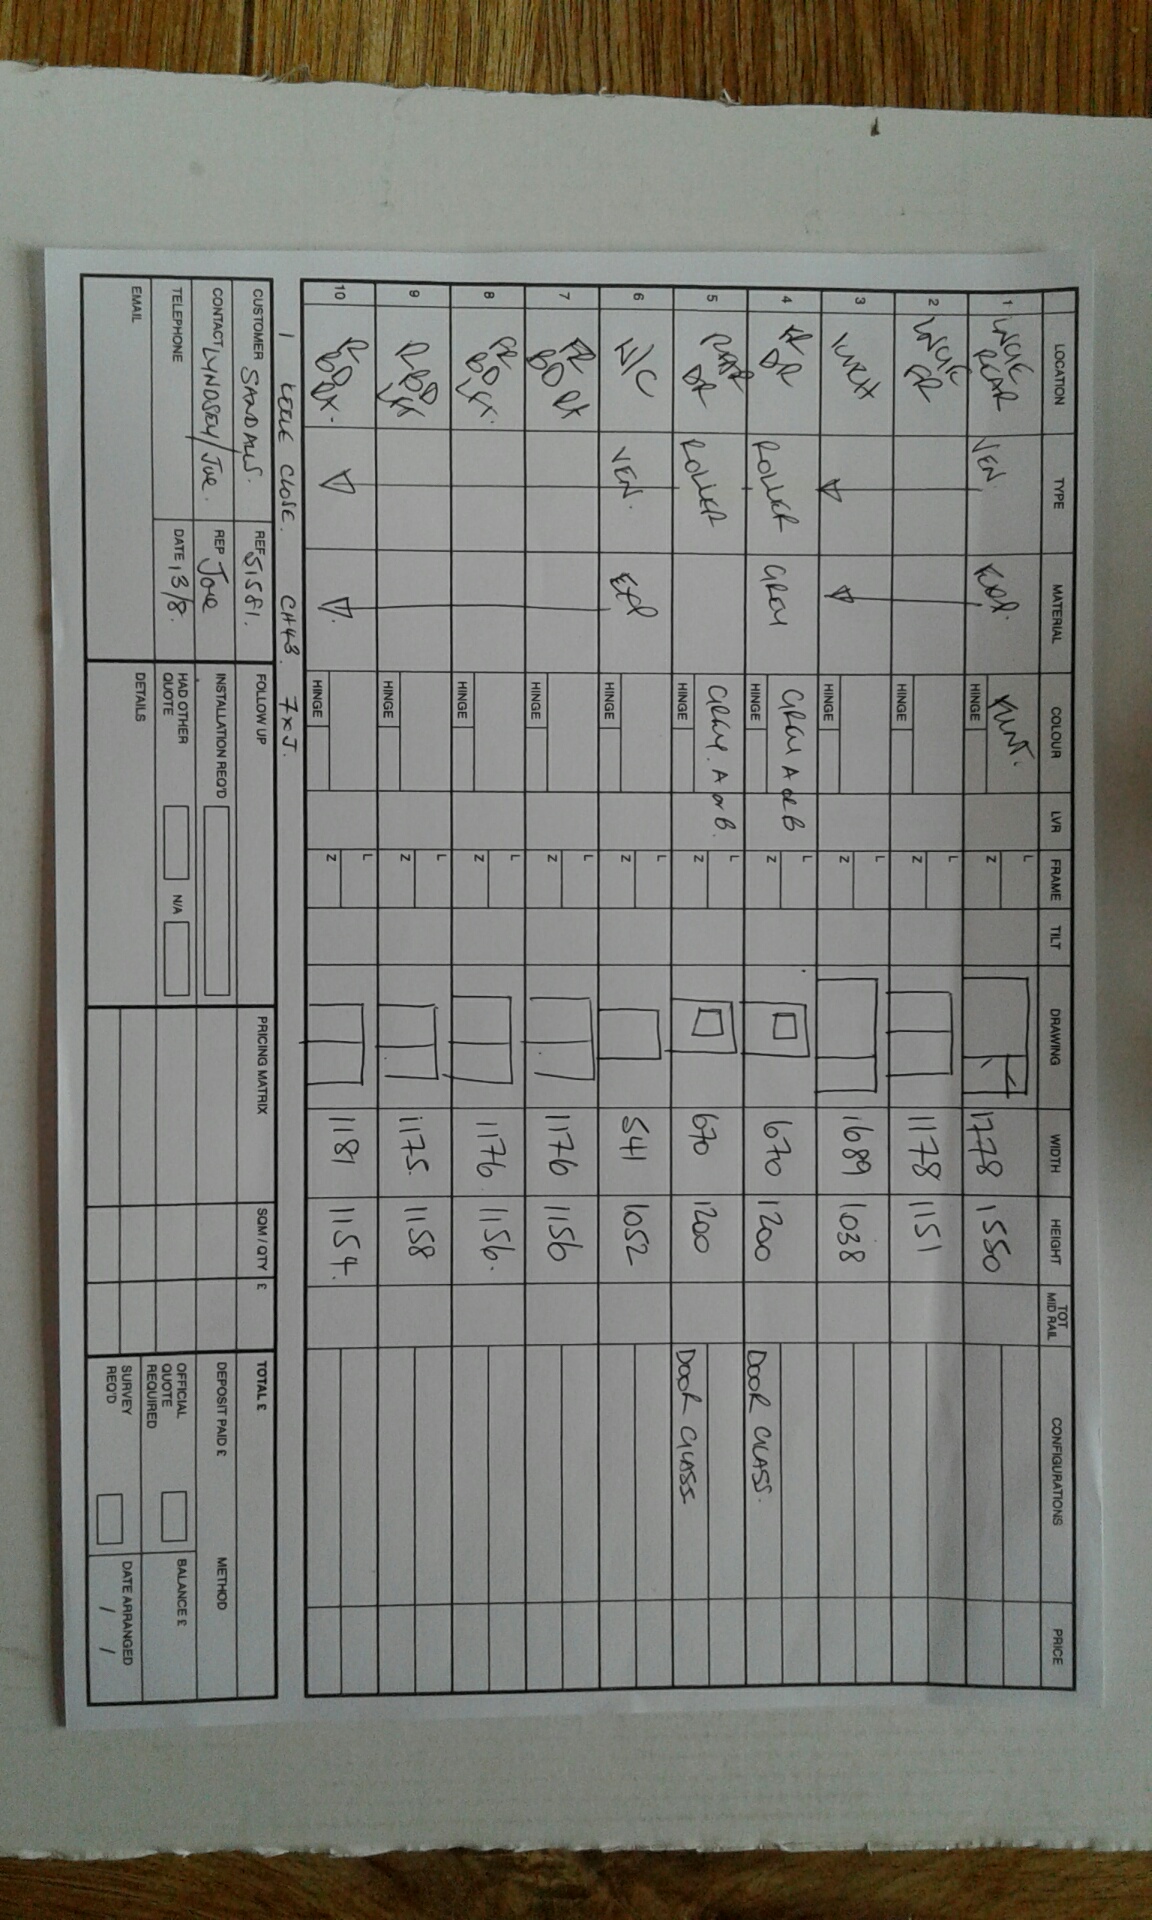 LOCATION TYPE MATERIAL COLOUR LVR FRAME TILT DRAWING WIDTH HEIGHT TOT MID RAIL CONFIGURATIONS PRICE
1 REAR VEN. HINGE L Z 1778 1550
2 HINGE L Z 1178 1151
3 HINGE L Z 1689 1038
4 FR DR ROLLER GREY GREY A or B HINGE L Z 670 1200 DOOR GLASS.
5 REAR DR ROLLER GREY. A or B. HINGE L Z 670 1200 DOOR GLASS
6 W/C VEN. HINGE L Z 541 1052
7 FR BD HINGE L Z 1176 1156
8 FR BD HINGE L Z 1176 1156.
9 R BD HINGE L Z 1175. 1158
10 R BD HINGE L Z 1181 1154.
1 CLOSE. CH43. 7XJ.
CUSTOMER REF 51581. FOLLOW UP PRICING MATRIX SQM / QTY £ TOTAL £
CONTACT LYNDSEY/Joe. REP Joe INSTALLATION REQ'D DEPOSIT PAID £ METHOD
TELEPHONE DATE 13/8. HAD OTHER QUOTE N/A OFFICIAL QUOTE REQUIRED BALANCE £
EMAIL DETAILS SURVEY REQ'D DATE ARRANGED / /